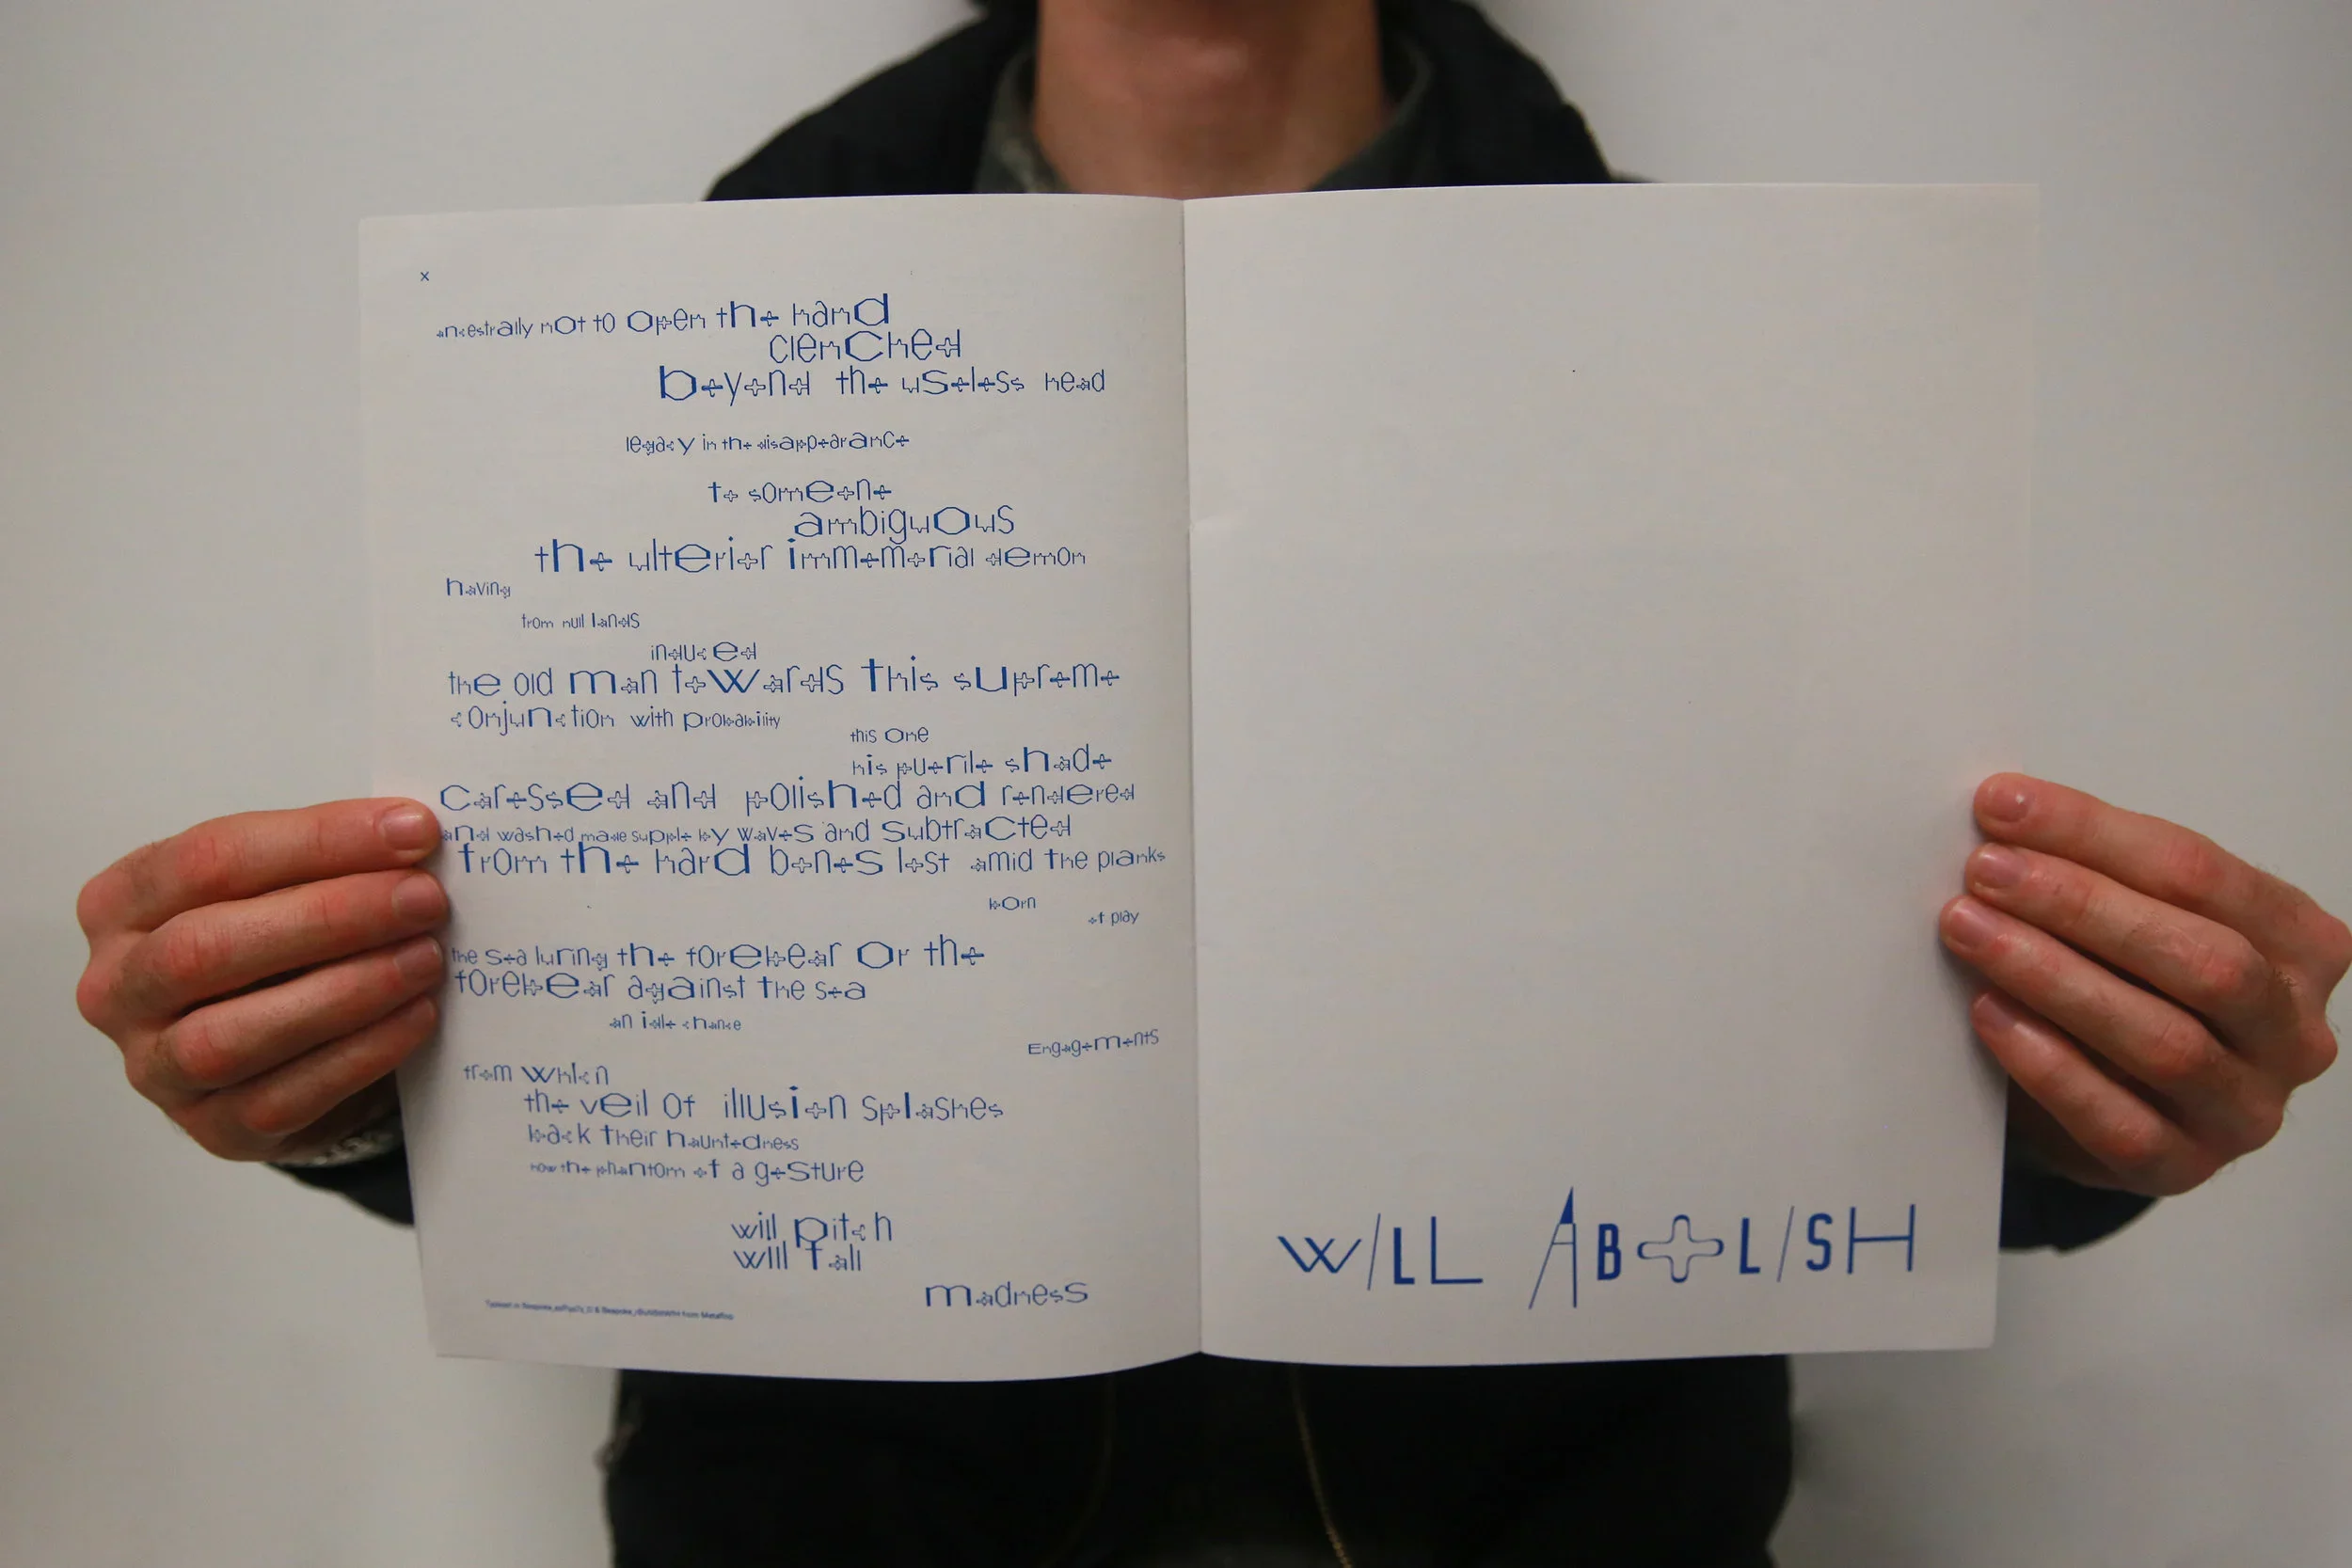 x
ancestrally not to open the hand
clenched
beyond the useless head
legacy in the disappearance
to someone
ambiguous
the ulterior immemorial demon
having
from null lands
induced
the old man towards this supreme
conjunction with probability
this one
his puerile shade
caressed and polished and rendered
and washed made supple by waves and subtracted
from the hard bones lost amid the planks
born
of play
the sea luring the forebear or the
forebear against the sea
an idle chance
Engagements
from which
the veil of illusion splashes
back their hauntedness
now the phantom of a gesture
will pitch
will fall
madness
Typeset in
from Metaflop
WILL ABOLISH